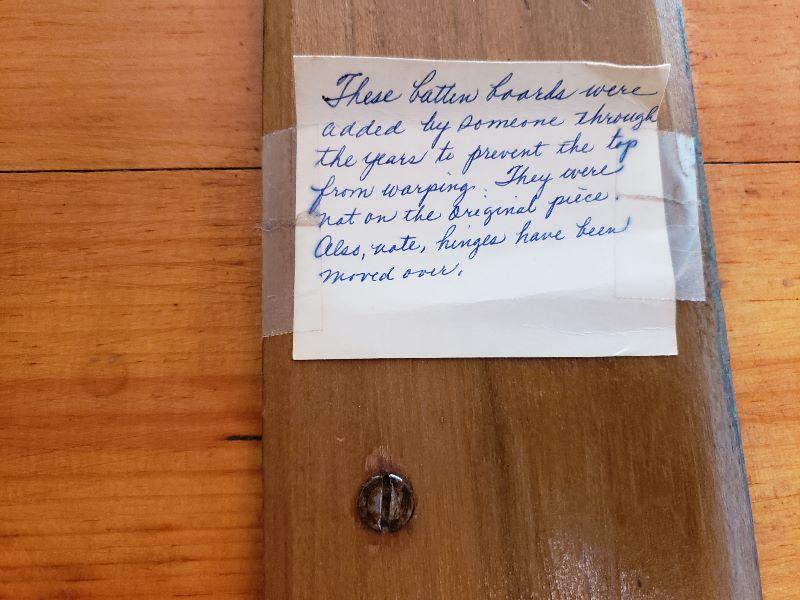 These batten boards were
added by someone through
the years to prevent the top
from warping. They were
not on the original piece.
Also, note, hinges have been
moved over.